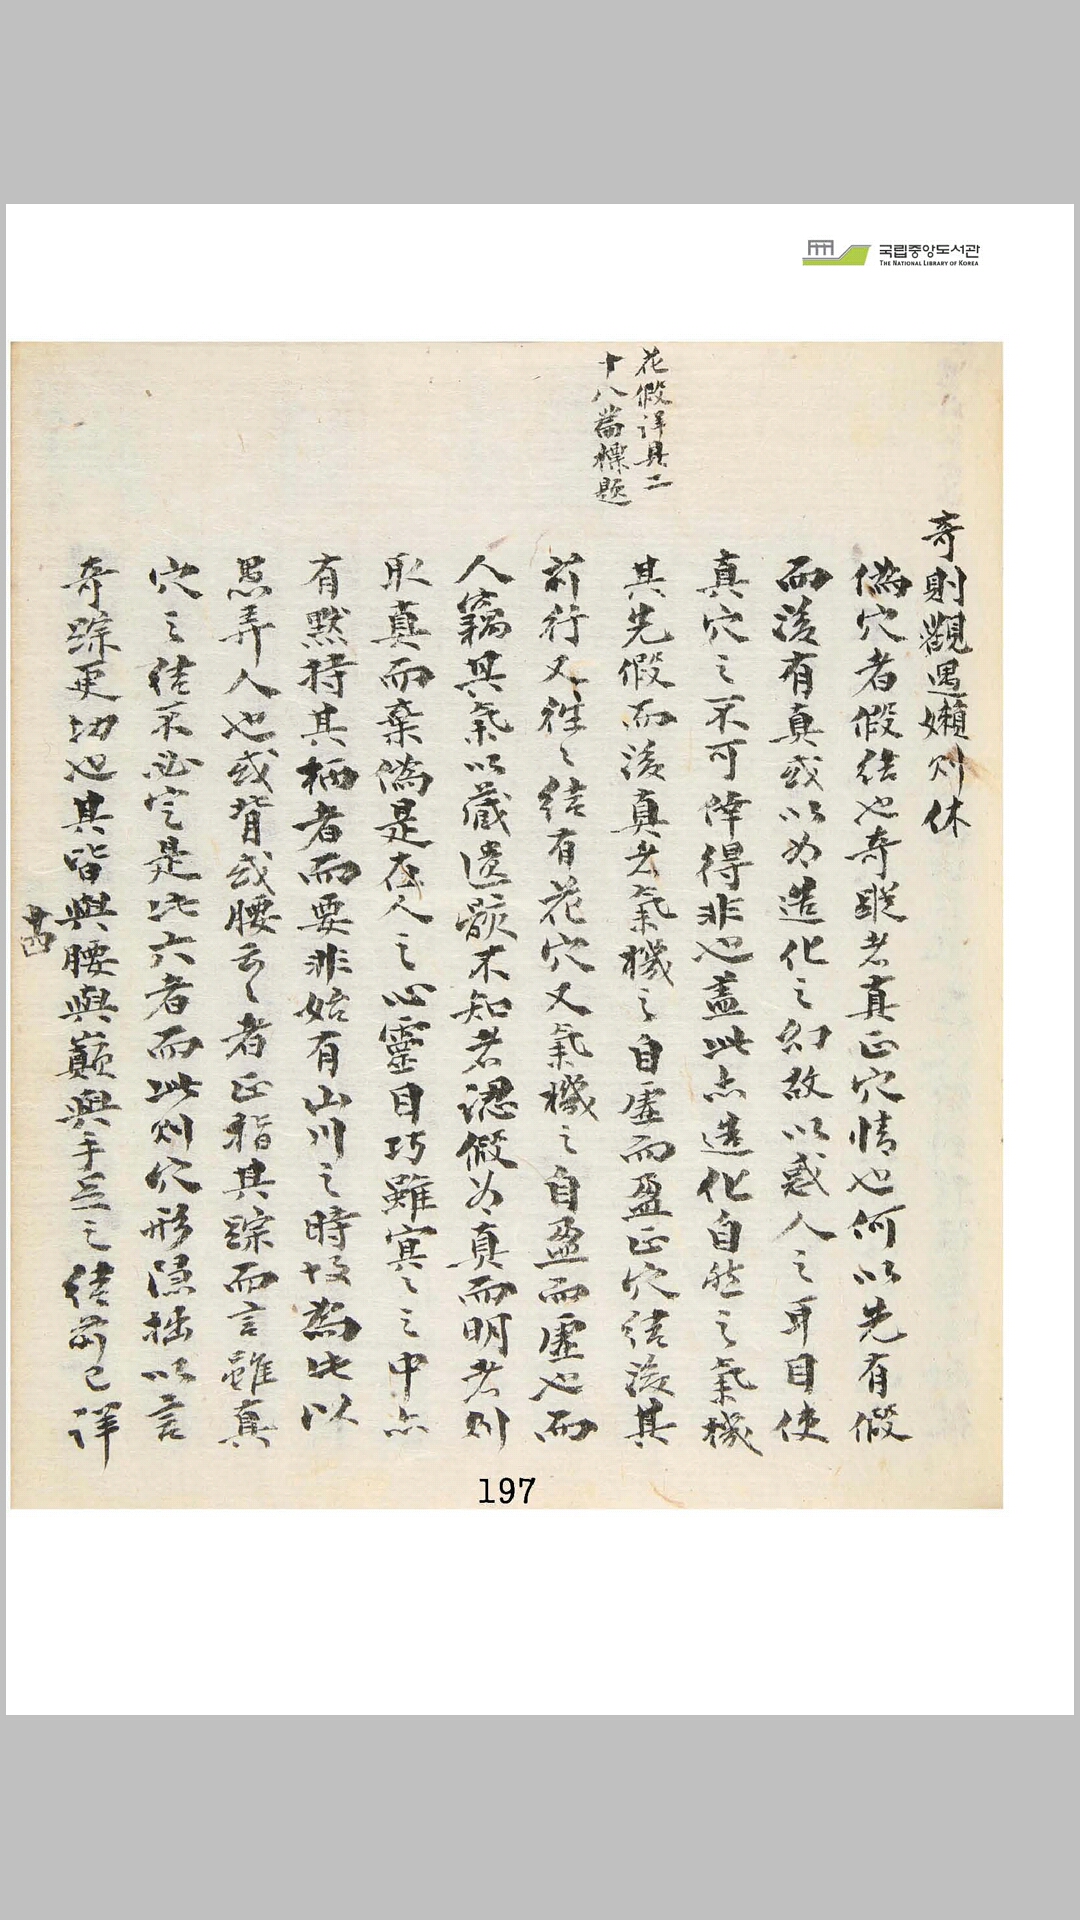 국립중앙도서관
THE NATIONAL LIBRARY OF KOREA
花假詳具二
十八葘標題
奇則觀遇嬾則休
偽穴者假結也奇蹤者真正穴情也何以先有假
而後有真或以为造化之幻故以惑人之耳目使
真穴之不可倖得非也盖此亦造化自然之氣機
其先假而後真者氣機之自虛而盈正穴結後其
前行又往〻結有花穴又氣機之自盈而虛也而
人竊其氣以藏遺骸不知者認假为真而明者則
取真而棄偽是在人之心靈目巧雖冥〻之中亦
有默持其柄者而要非始有山川之時故為此以
愚弄人也或背或腰云〻者正指其踪而言雖真
穴之結不必定是此六者而此則穴形隱拙以言
奇踪更切也其皆與腰與巔與手足之結前已詳
廿四
197